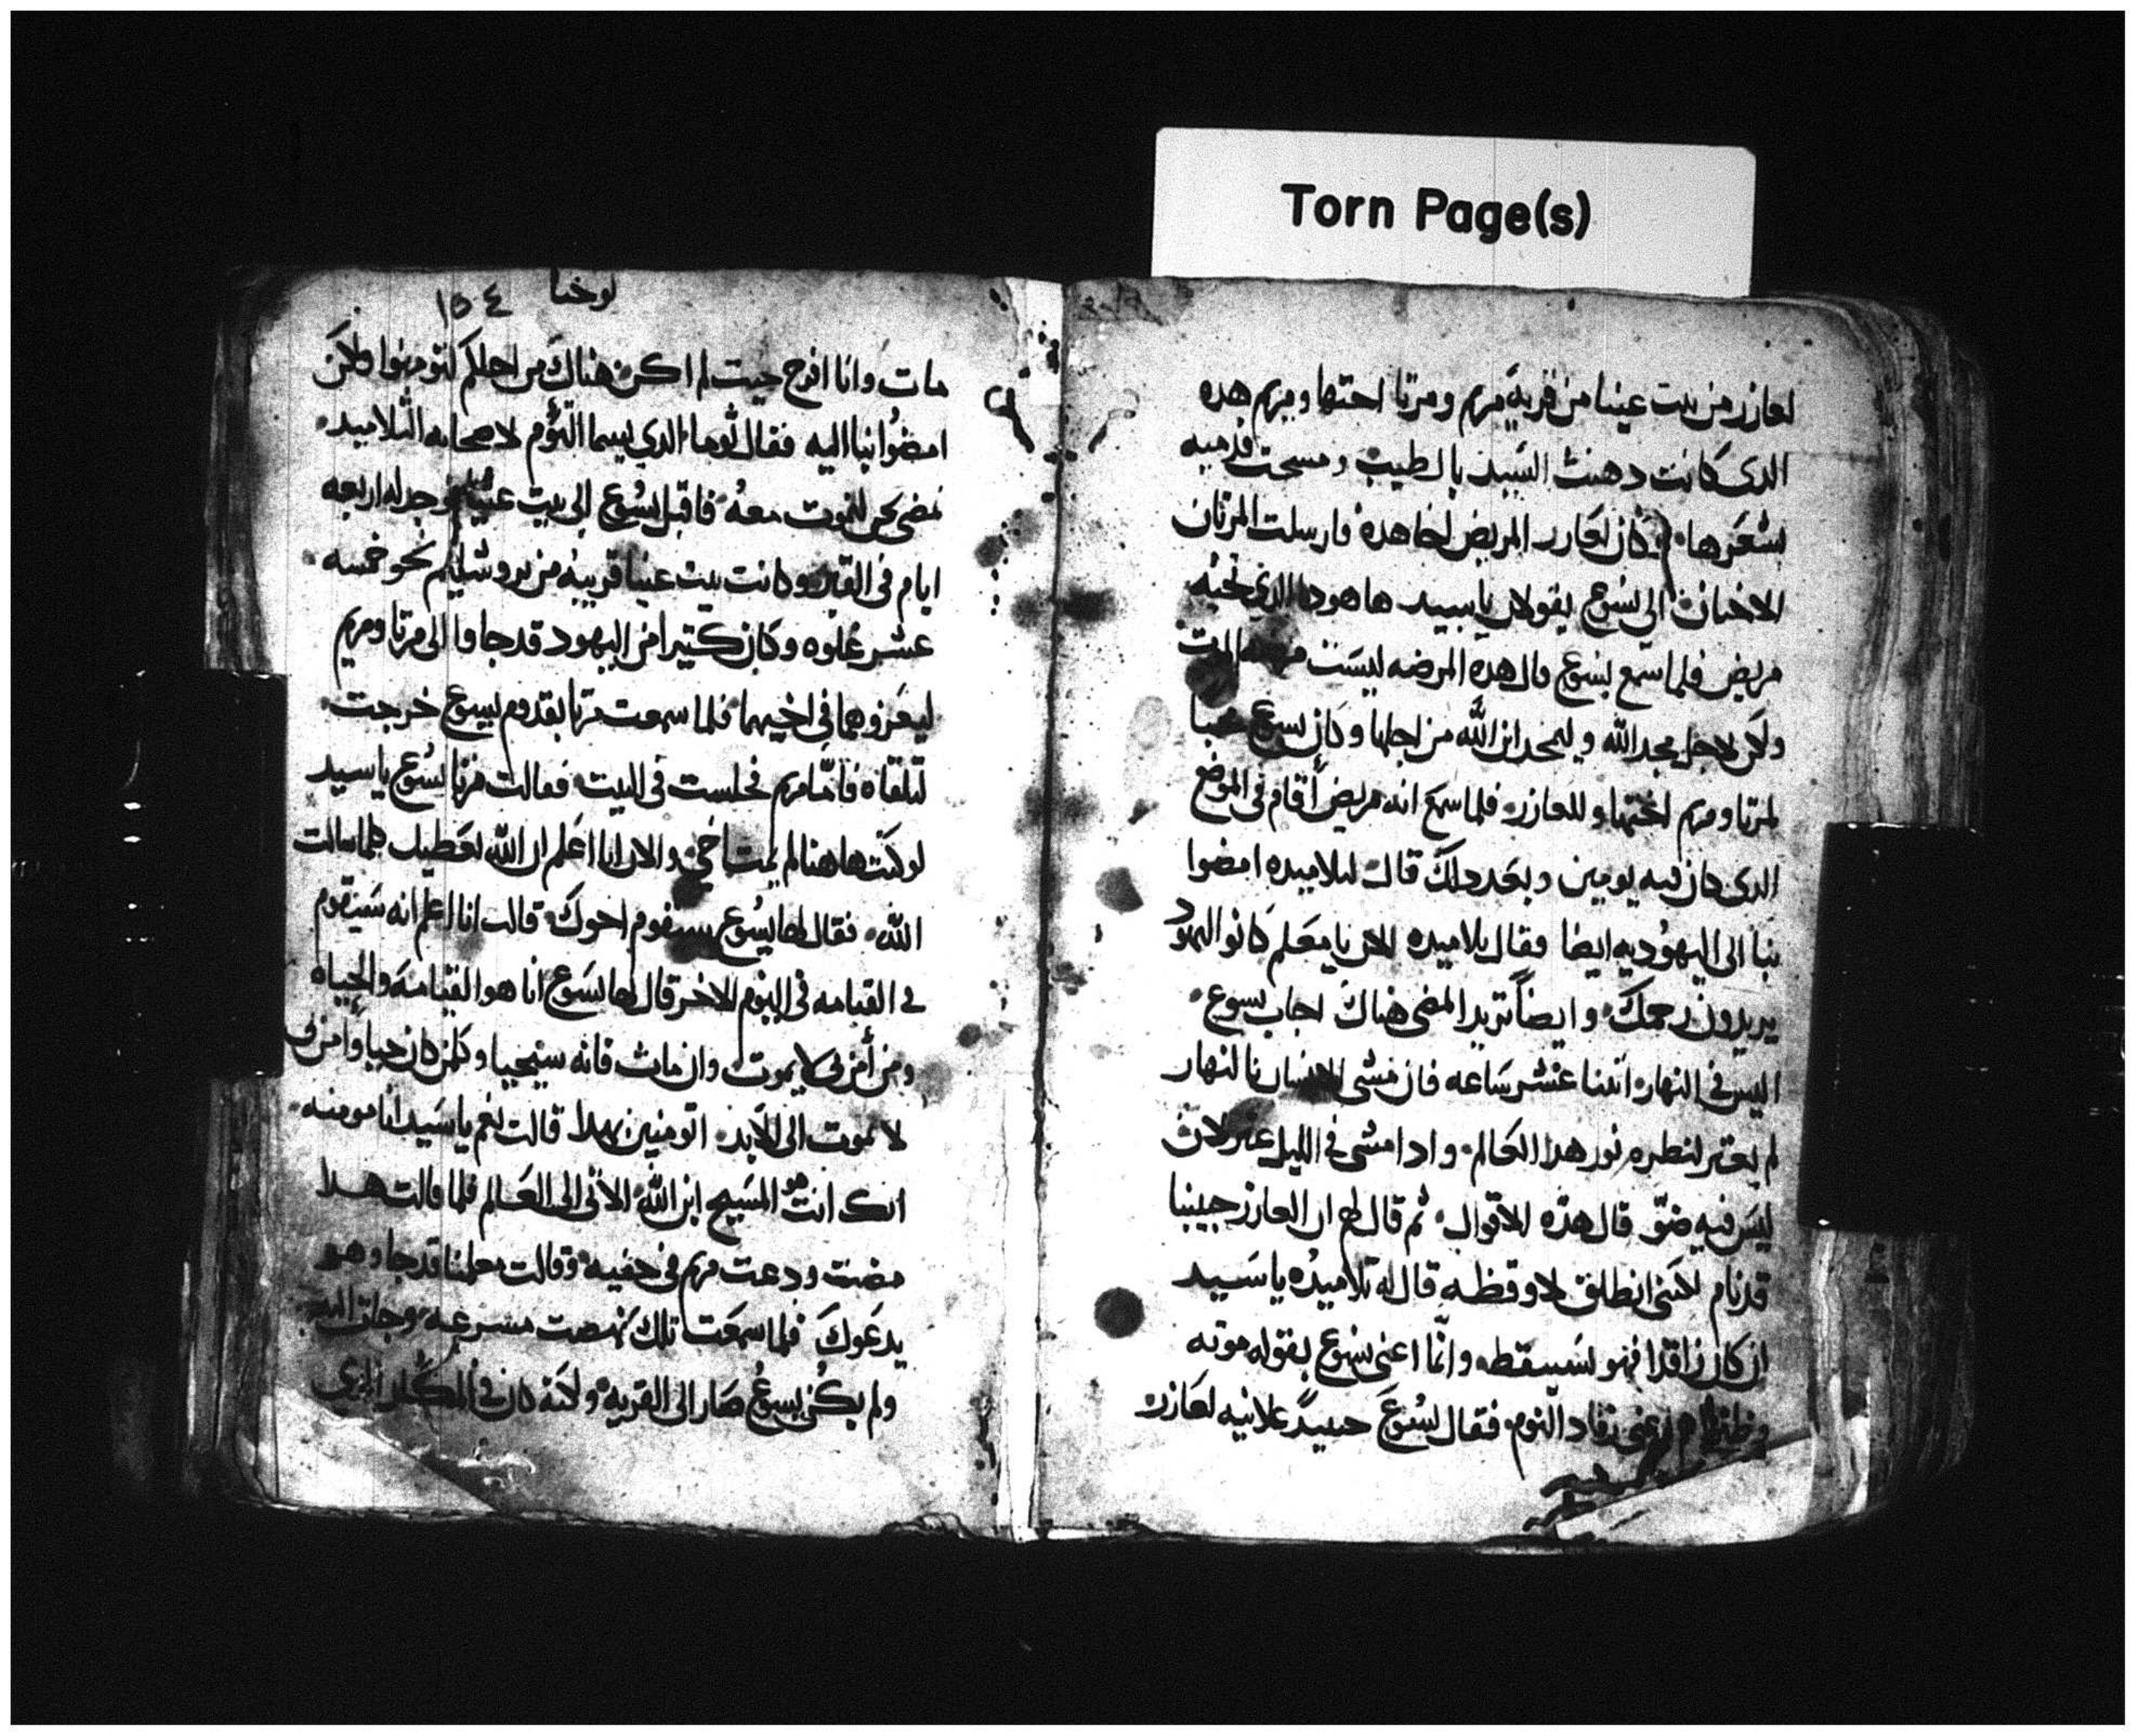 Torn Page(s)
لعازر من بيت عينا من قرية مريم ومرتا احتها ومريم هده
الدى كانت دهنت السيد بالطيب ومسحت قدميه
بشعرها وكان لعازر المريض اخا هده فارسلت المرتان
الاختان الى يسوع يقولان يا سيد ها هودا الدي تحبه
مريض فلما سمع يسوع قال هده المرضه ليست الموت
ولكن لاجل مجد الله وليمجد ابن الله من اجلها وكان يسوع محبا
لمرتا ومريم اختها وللعازر فلما سمع انه مريض أقام في الموضع
الدى كان فيه يومين وبعد دلك قال لتلاميده امضوا
بنا الى اليهوديه ايضا فقال تلاميده الان يا معلم كانو اليهود
يريدون رجمك وايضاً تريد المضى هناك اجاب يسوع
اليس في النهار اتنتا عشر ساعه فان مشى الانسان بالنهار
لم يعتر لنظره نور هدا العالم وادا مشى في الليل عتر لان
ليس فيه ضو قال هده الاقوال ثم قال لهم ان العازر حبيبنا
قد نام لكننى انطلق لاوقظه قال له تلاميده يا سيد
ان كان راقدا فهو سيستيقظ وانما اعنى يسوع بقوله موته
رقاد النوم فقال يسوع حينيد علانيه لعازر
لوحنا
١٥٤
مات وانا افرح حيت لم اكن هناك من اجلكم لتومنوا ولكن
امضوا بنا اليه فقال توما الدي يسما التؤم لاصحابه التلاميد
نمضى نحن لنموت معه فاقبل يسوع الى بيت عنيا فوجد له اربعه
ايام في القبر وكانت بيت عنيا قريبه من يروشليم نحو خمسه
عشر غلوه وكان كتيرا من اليهود قد جاوا الى مرتا ومريم
ليعزوهما في اخيهما فلما سمعت مرتا بقدوم يسوع خرجت
تتلقاه فامّا مريم فجلست في البيت فقالت مرتا ليسوع يا سيد
لو كنت هاهنا لم يمت اخي والان انا اعلم ان الله يعطيك كلما سالت
الله فقال لها يسوع سيقوم اخوك قالت انا اعلم انه سيقوم
في القيامه في اليوم الاخر قال لها يسوع انا هو القيامة والحياه
ومن أمن بى لا يموت وان مات فانه سيحيا وكلمن كان حيا وامن بى
لا يموت الى الابد اتومنين بهدا قالت نعم يا سيد انا مومنه
انك انت هو المسيح ابن الله الاتى الى العالم فلما قالت هدا
مضت ودعت مريم في خفيه وقالت معلمنا قد جا وهو
يدعوك فلما سمعت تلك نهضت مسرعه وجات اليه
ولم يكن يسوع صار الى القريه ولكنه كان في المكان الدي